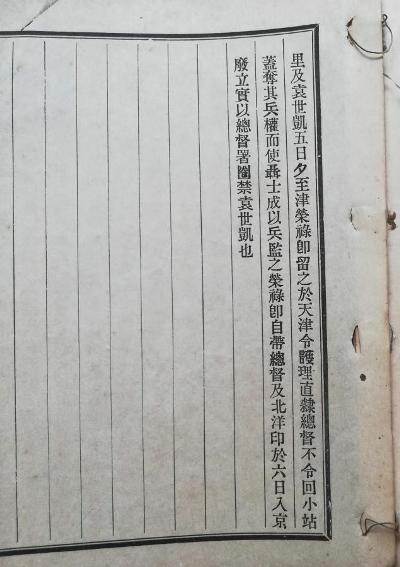 里及袁世凱五日夕至津榮祿卽留之於天津令護理直隸總督不令回小站
蓋奪其兵權而使聶士成以兵監之榮祿卽自帶總督及北洋印於六日入京
廢立實以總督署閣禁袁世凱也